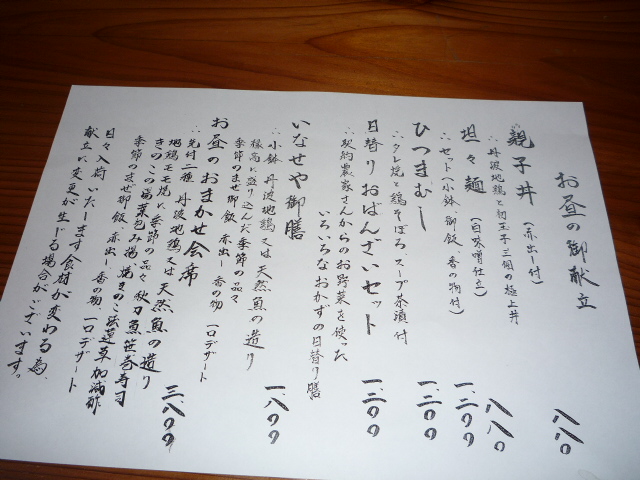 お昼の御献立
親子丼 (赤出し付) 八八〇
∴丹波地鶏と初玉子三個の極上丼
坦々麺 (白味噌仕立) 八八〇
∴セット(小鉢、御飯、香の物付) 一、二〇〇
ひつまむし 一、二〇〇
∴タレ焼と鶏そぼろ、スープ茶漬付
日替りおばんざいセット 一、二〇〇
∴契約農家さんからのお野菜を使った
いろいろなおかずの日替り膳
いなせや御膳 一、八〇〇
∴小鉢 丹波地鶏又は天然魚の造り
籠に盛り込んだ季節の品々
季節のまぜ御飯 赤出し 香の物 一口デザート
お昼のおまかせ会席 三、八〇〇
∴先付二種 丹波地鶏又は天然魚の造り
地鶏モモ焼に季節の品々 秋刀魚笹巻寿司
きのこの湯葉包み揚 焼きのこ法蓮草加減酢
季節のまぜ御飯 赤出し 香の物 一口デザート
日々入荷いたします食材が変わる為、
献立に変更が生じる場合がございます。